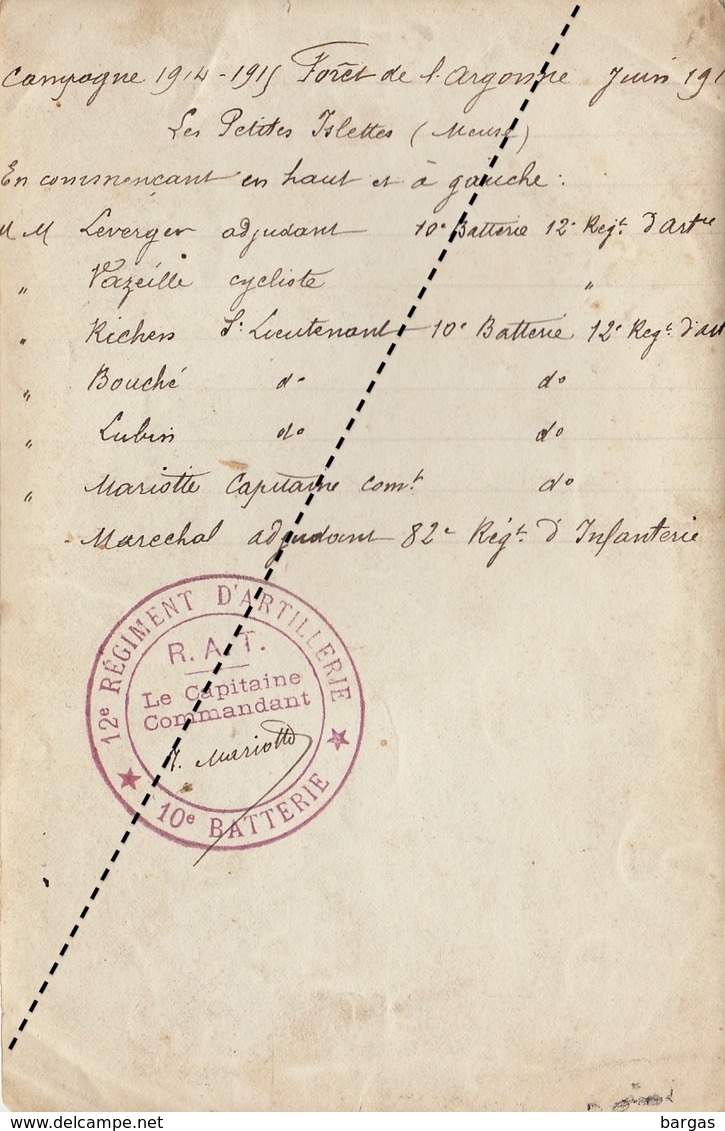 Campagne 1914-1915 Forêt de l'Argonne Juin 191
Les Petites Islettes (Meuse)
En commençant en haut et à gauche :
M M Leverger adjudant 10e Batterie 12e Regt. d'Artrie
" Vazeille cycliste "
" Richen S: Lieutenant 10e Batterie 12e Regt. d'art
" Bouché do do
" Lubin do do
" Mariotte Capitaine comt. do
- Marechal adjudant 82e Régt. d'Infanterie
12e RÉGIMENT D'ARTILLERIE
R. A. T.
Le Capitaine
Commandant
Mariotte
★ 10e BATTERIE ★
bargas